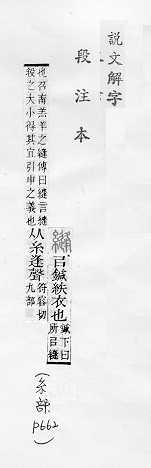 說文解字
段注本
縫 㠯鍼紩衣也 鍼下曰
所㠯縫
也召南羔羊之縫傳曰縫言縫
殺之大小得其宜引申之義也
从糸逢聲 符容切
九部
(糸部
p662)